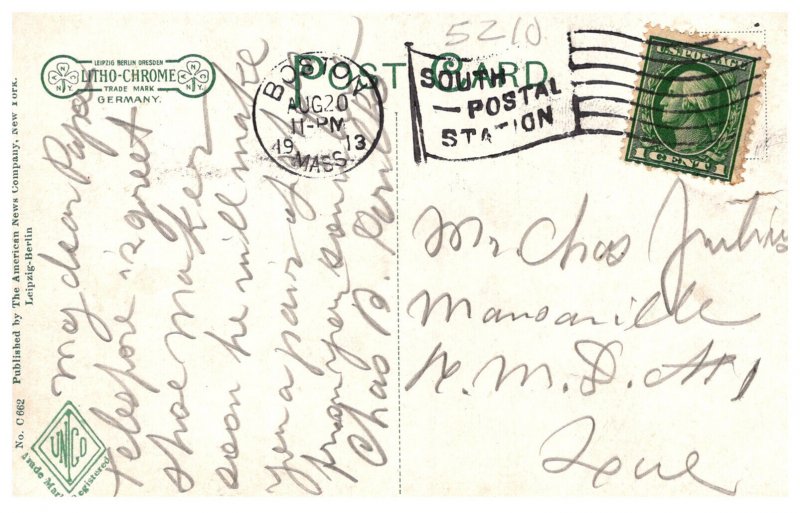 5210
POST CARD
LEIPZIG BERLIN DRESDEN
LITHO-CHROME
TRADE MARK
GERMANY.
N Y
N Y
BOSTON
AUG 20
11-PM
1913
MASS.
SOUTH
POSTAL
STATION
U.S. POSTAGE
1 CENT 1
No. C 662 Published by The American News Company, New York.
Leipzig-Berlin
UNCO
Trade Mark Registered
My dear Papa
is a greet
shoe maker
soon he will make
you a pair of
from your son
Chas B.
Mr Chas
Mansonville
R. M. D. #1